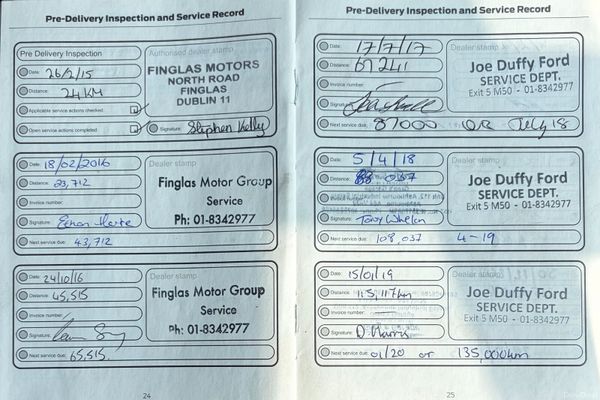 Pre-Delivery Inspection and Service Record
Pre Delivery Inspection
Date: 26/2/15
Distance: 24KM
Applicable service actions checked:
Open service actions completed:
Authorised dealer stamp
FINGLAS MOTORS
NORTH ROAD
FINGLAS
DUBLIN 11
Signature: Stephen Kelly
Date: 18/02/2016
Distance: 23,712
Invoice number:
Signature:
Next service due: 43,712
Dealer stamp
Finglas Motor Group
Service
Ph: 01-8342977
Date: 24/10/16
Distance: 45,515
Invoice number:
Signature:
Next service due: 65,515.
Dealer stamp
Finglas Motor Group
Service
Ph: 01-8342977
24
Pre-Delivery Inspection and Service Record
Date: 17/7/17
Distance: 67241
Invoice number:
Signature:
Next service due: 87000 OR July 18
Dealer stamp
Joe Duffy Ford
SERVICE DEPT.
Exit 5 M50 - 01-8342977
Date: 5/4/18
Distance: 037
Signature: Tony Whelan
Next service due: 109,037 4-19
Dealer stamp
Joe Duffy Ford
SERVICE DEPT.
Exit 5 M50 - 01-8342977
Date: 15/01/19
Distance: 115,117km
Invoice number:
Signature: D. Harris
Next service due: 01/20 or 135,000km
Dealer stamp
Joe Duffy Ford
SERVICE DEPT.
Exit 5 M50 - 01-8342977
25